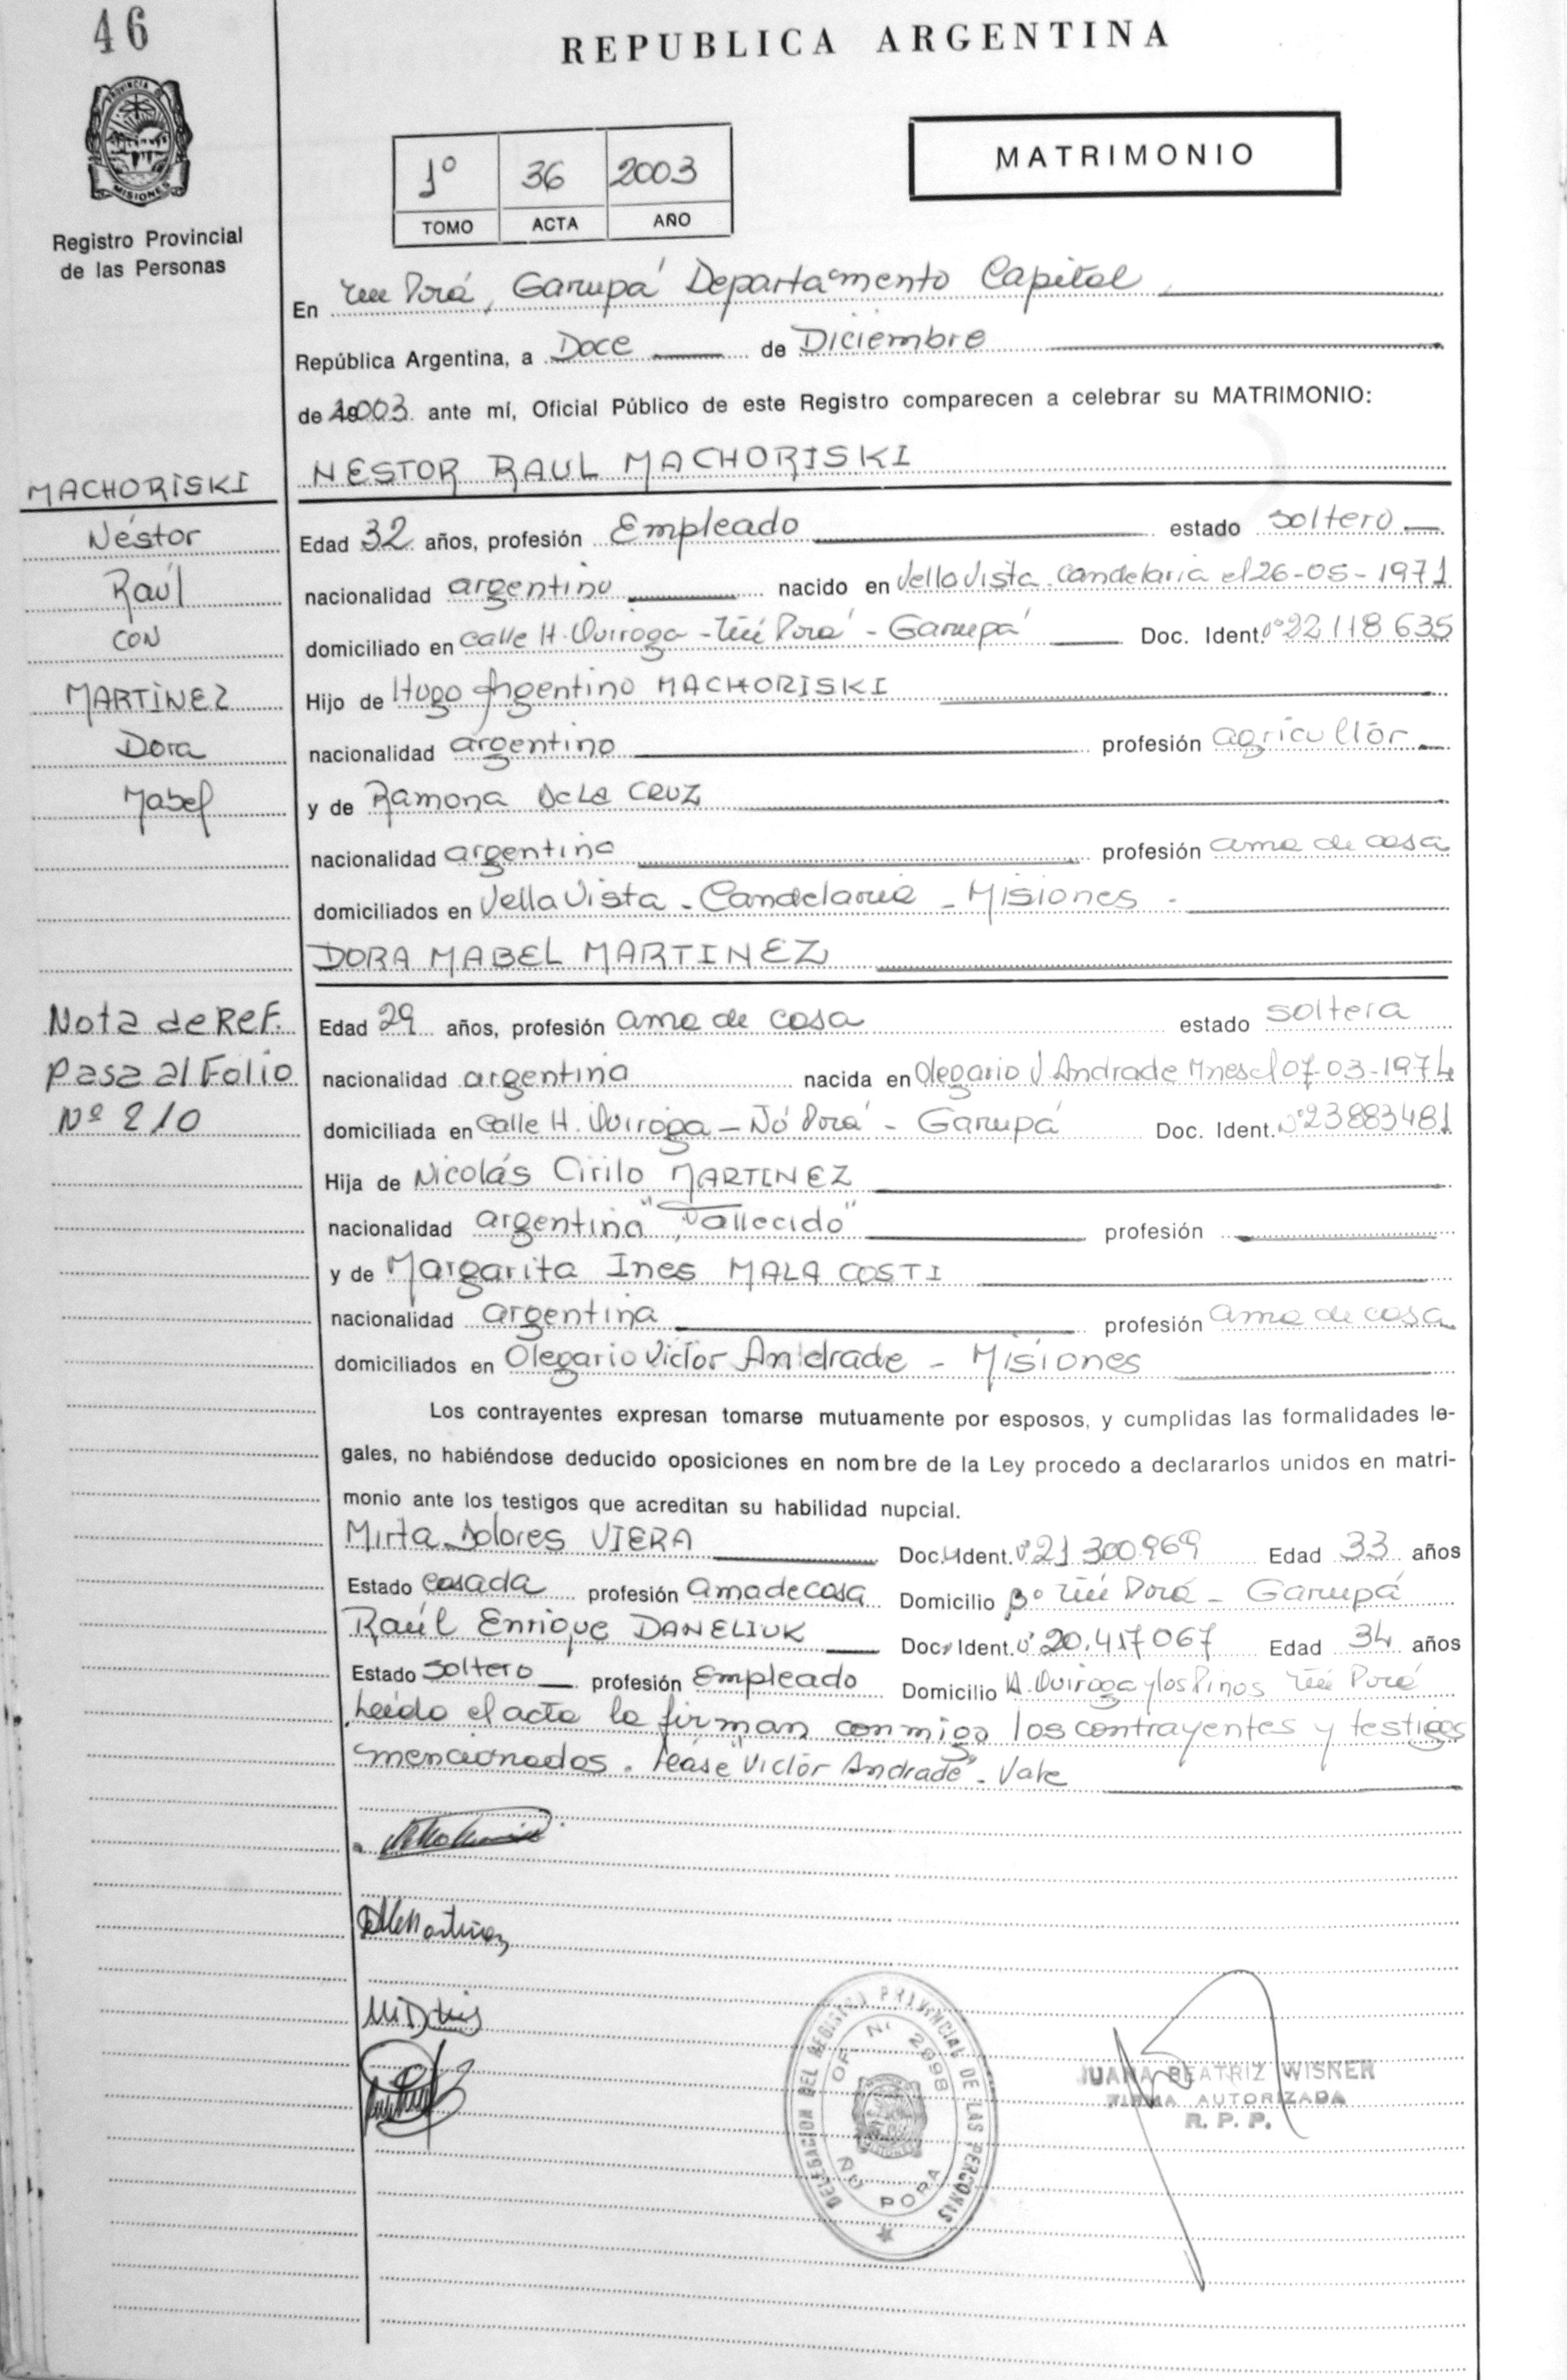 46
REPUBLICA ARGENTINA
PROVINCIA DE
MISIONES
Registro Provincial
de las Personas
1º 36 2003
TOMO ACTA AÑO
MATRIMONIO
En Ñu Porá, Garupá Departamento Capital
República Argentina, a Doce de Diciembre
de 2003 ante mí, Oficial Público de este Registro comparecen a celebrar su MATRIMONIO:
NESTOR RAUL MACHORISKI
MACHORISKI
Néstor
Raúl
CON
MARTINEZ
Dora
Mabel
Edad 32 años, profesión Empleado estado soltero
nacionalidad argentino nacido en Vella Vista Candelaria el 26-05-1971
domiciliado en calle H. Quiroga - Ñú Porá - Garupá Doc. Ident. Nº 22118635
Hijo de Hugo Argentino MACHORISKI
nacionalidad argentino profesión agricultor
y de Ramona De La CRUZ
nacionalidad argentina profesión ama de casa
domiciliados en Vella Vista - Candelaria - Misiones -
DORA MABEL MARTINEZ
Nota de Ref.
Pasa al Folio
Nº 210
Edad 29 años, profesión ama de casa estado soltera
nacionalidad argentina nacida en Olegario V Andrade Mnes el 07-03-1974
domiciliada en Calle H. Quiroga - Ñú Porá - Garupá Doc. Ident. Nº 23883481
Hija de Nicolás Cirilo MARTINEZ
nacionalidad argentina "Fallecido" profesión
y de Margarita Ines MALACOSTI
nacionalidad argentina profesión ama de casa
domiciliados en Olegario Victor Andrade - Misiones
Los contrayentes expresan tomarse mutuamente por esposos, y cumplidas las formalidades le-
gales, no habiéndose deducido oposiciones en nombre de la Ley procedo a declararlos unidos en matri-
monio ante los testigos que acreditan su habilidad nupcial.
Mirta Dolores VIERA Doc. Ident. Nº 21300969 Edad 33 años
Estado casada profesión ama de casa Domicilio Bº Ñú Porá - Garupá
Raúl Enrique DANELIUK Doc. Ident. Nº 20.417067 Edad 34 años
Estado soltero profesión Empleado Domicilio H. Quiroga y los Pinos Ñú Porá
Leído el acta la firman conmigo los contrayentes y testigos
mencionados. Léase "Victor Andrade". Vale
DELEGACION DEL REGISTRO PROVINCIAL DE LAS PERSONAS
OF. Nº 2998
ÑU PORA
JUANA BEATRIZ WISNER
FIRMA AUTORIZADA
R. P. P.